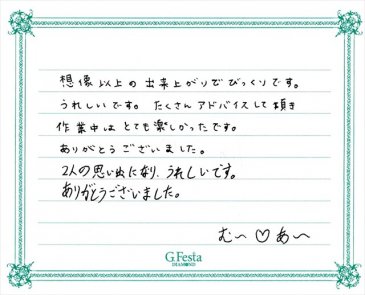 想像以上の出来上がりでびっくりです。
うれしいです。たくさんアドバイスして頂き
作業中はとても楽しかったです。
ありがとうございました。
2人の思い出になり、うれしいです。
ありがとうございました。
む〜♡あ〜
G.Festa
DIAMOND